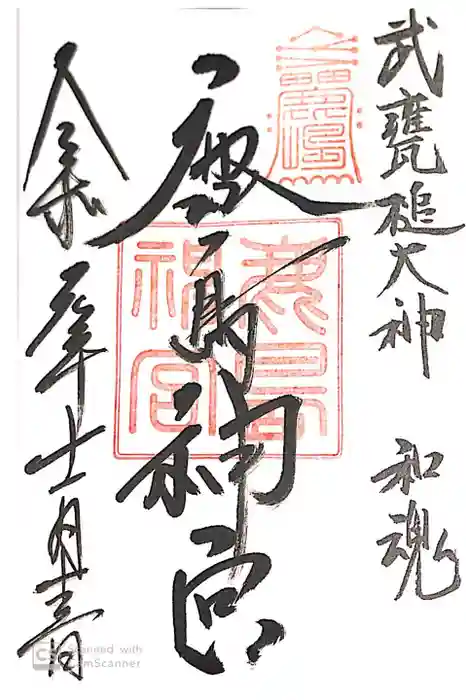 武甕槌大神 和魂
鹿島神宮
鹿島
神宮
令和元年十一月十三日
Scanned with
CamScanner